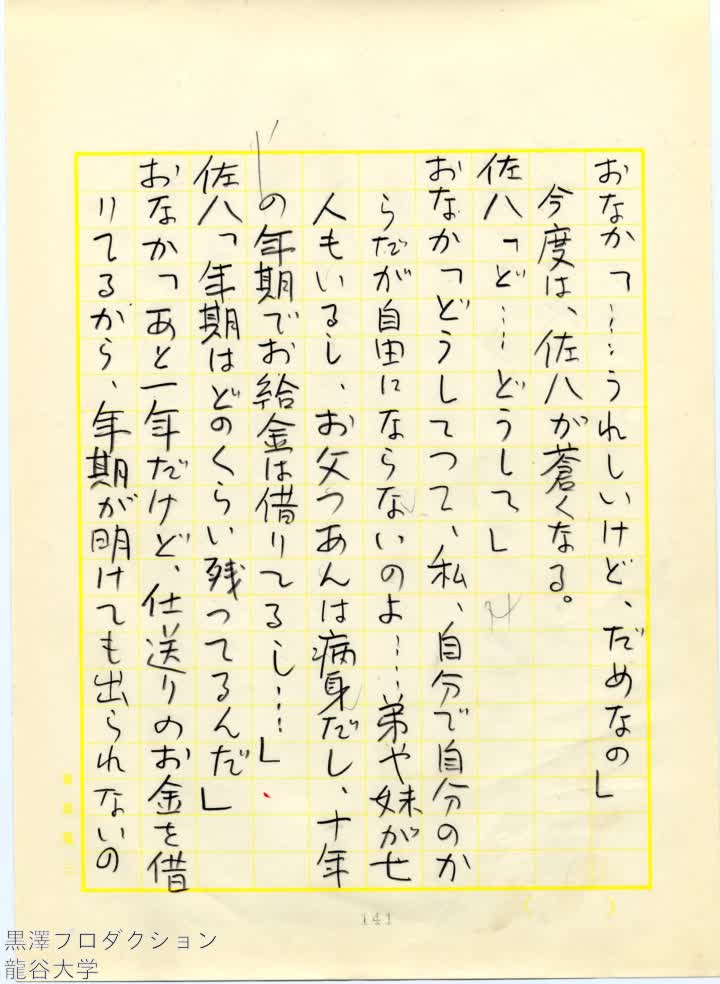 おなか「……うれしいけど、だめなの」
今度は、佐八が蒼くなる。
佐八「ど……どうして」
おなか「どうしてつて、私、自分で自分のか
らだが自由にならないのよ……弟や妹が七
人もいるし、お父つあんは病身だし、十年
の年期でお給金は借りてるし……」
佐八「年期はどのくらい残つてるんだ」
おなか「あと一年だけど、仕送りのお金を借
りてるから、年期が明けても出られないの
141
黒澤プロダクション
龍谷大学